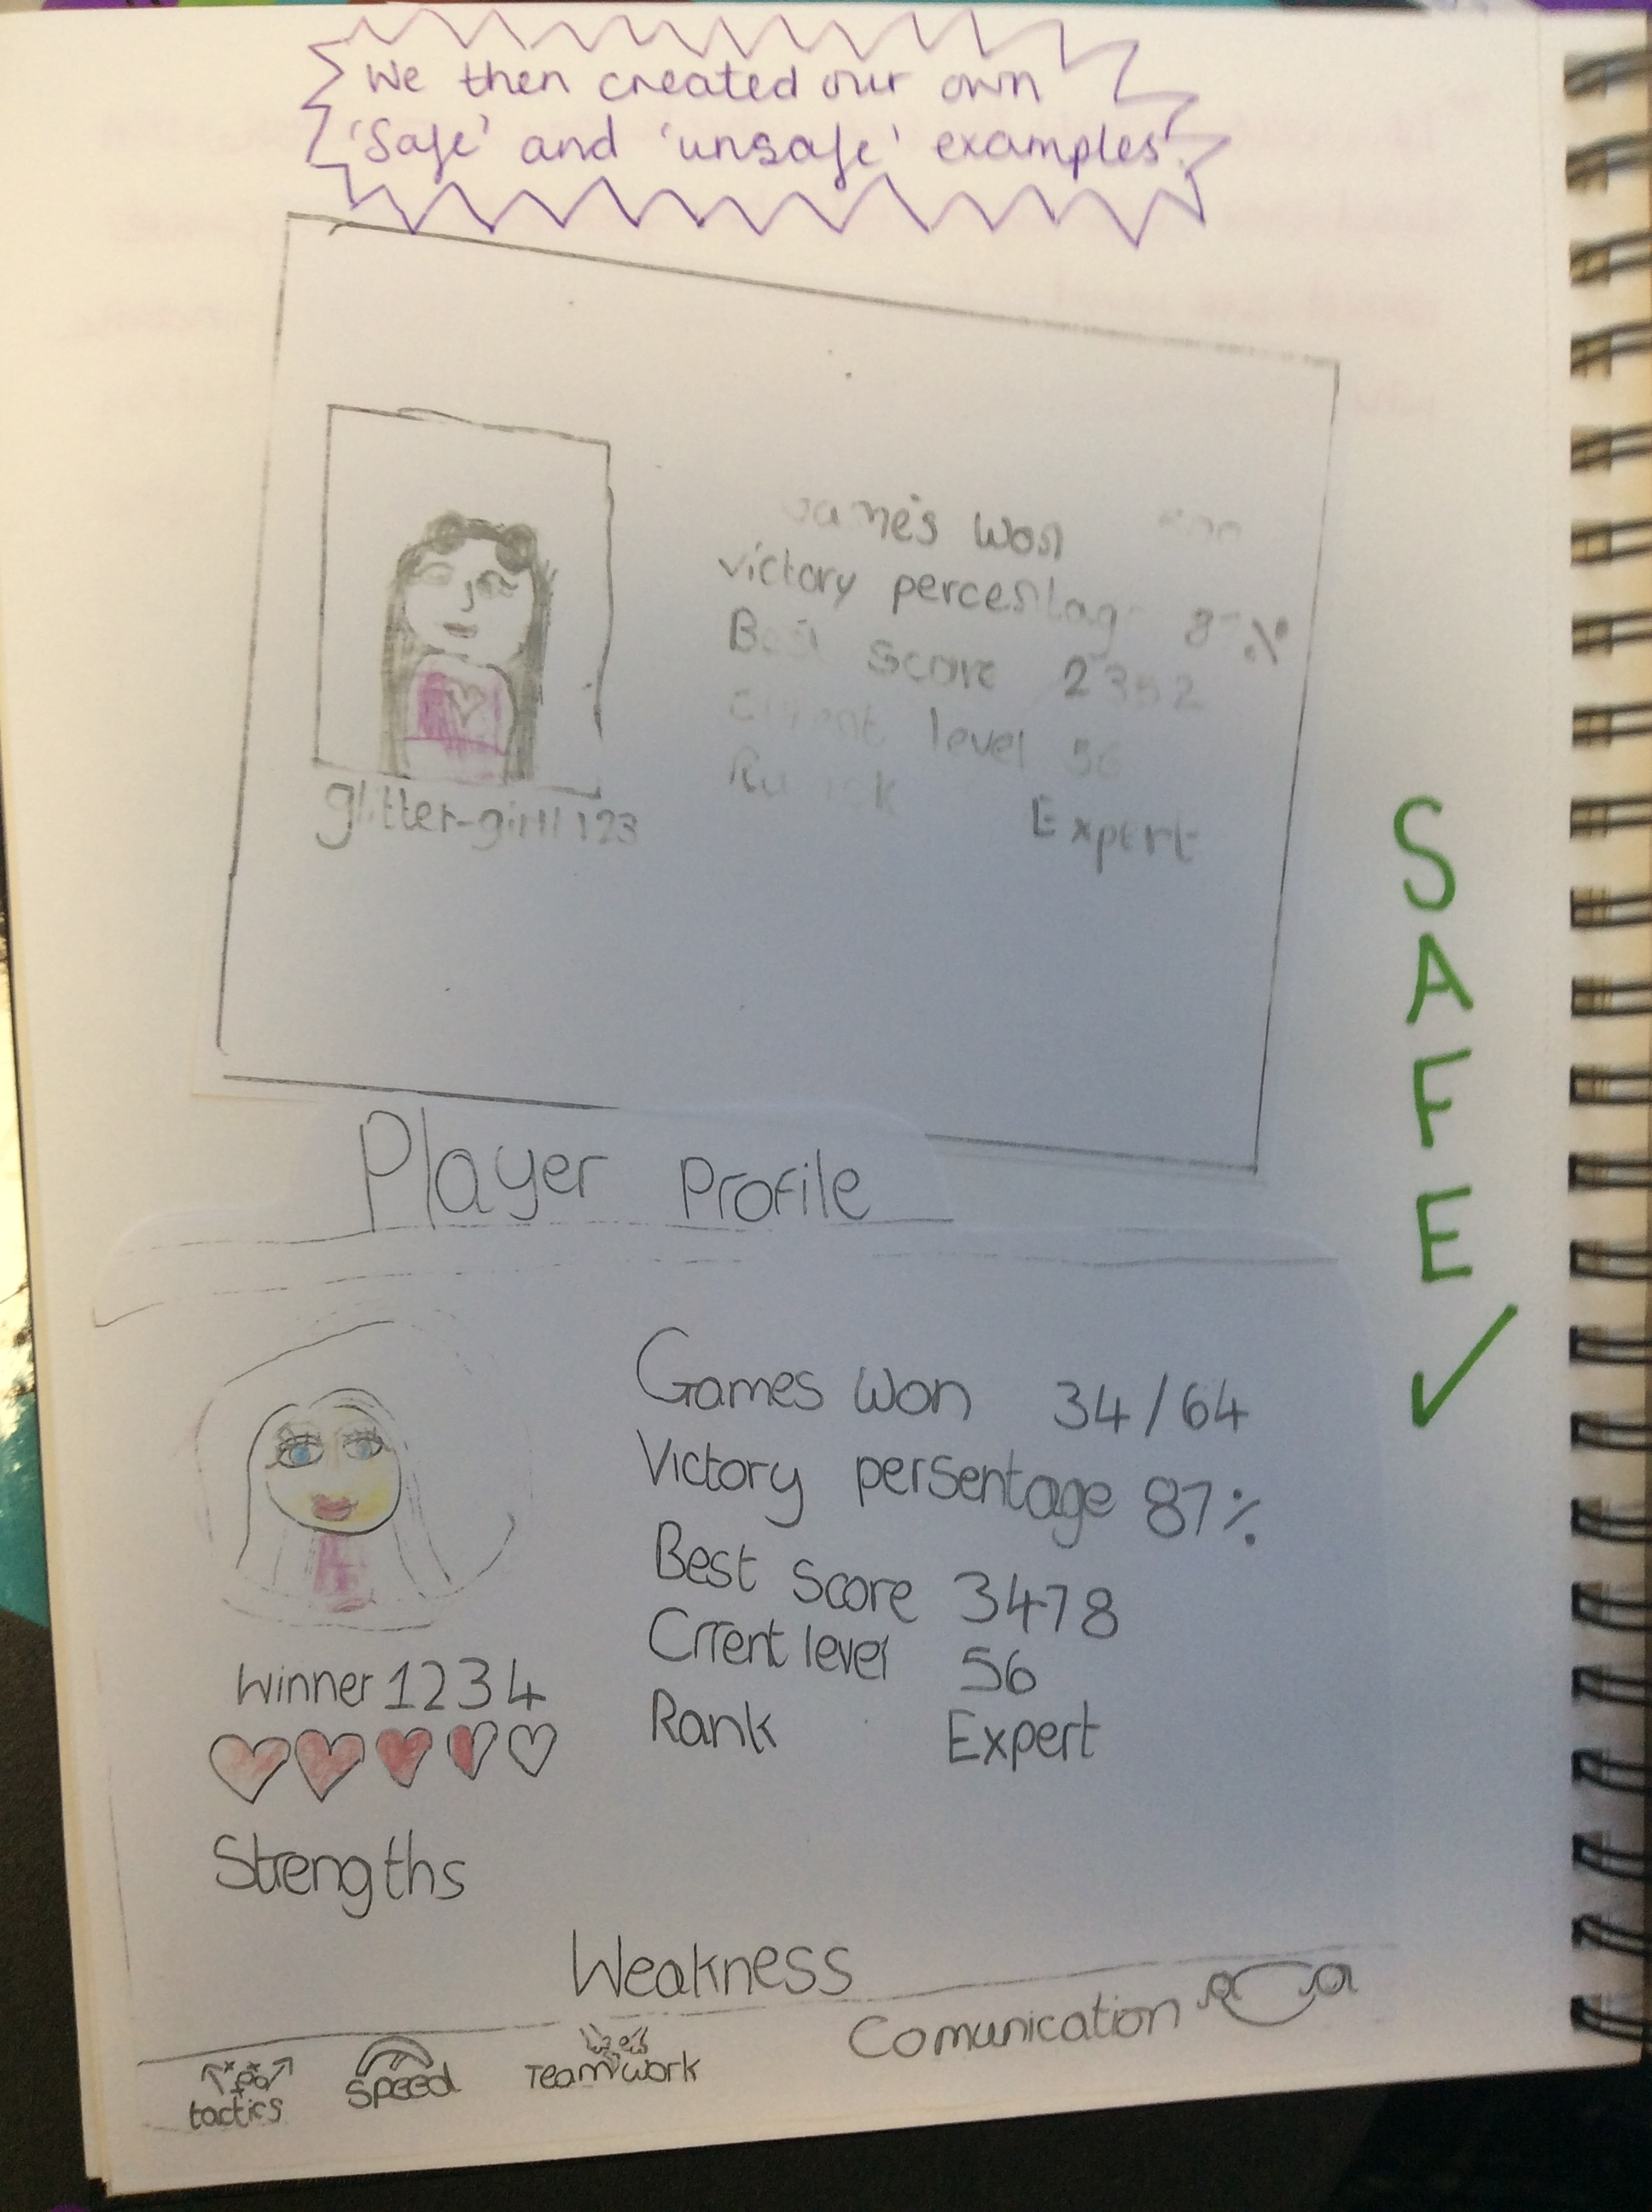 We then created our own
'Safe' and 'unsafe' examples
Won
victory
score 2352
level 56
Expert
glitter-girl1123
SAFE
Player Profile
Games Won 34/64
Victory persentage 87%
Best Score 3478
Crrent level 56
Rank Expert
Winner 1234
Strengths
Weakness
tactics
Speed
Teamwork
Comunication